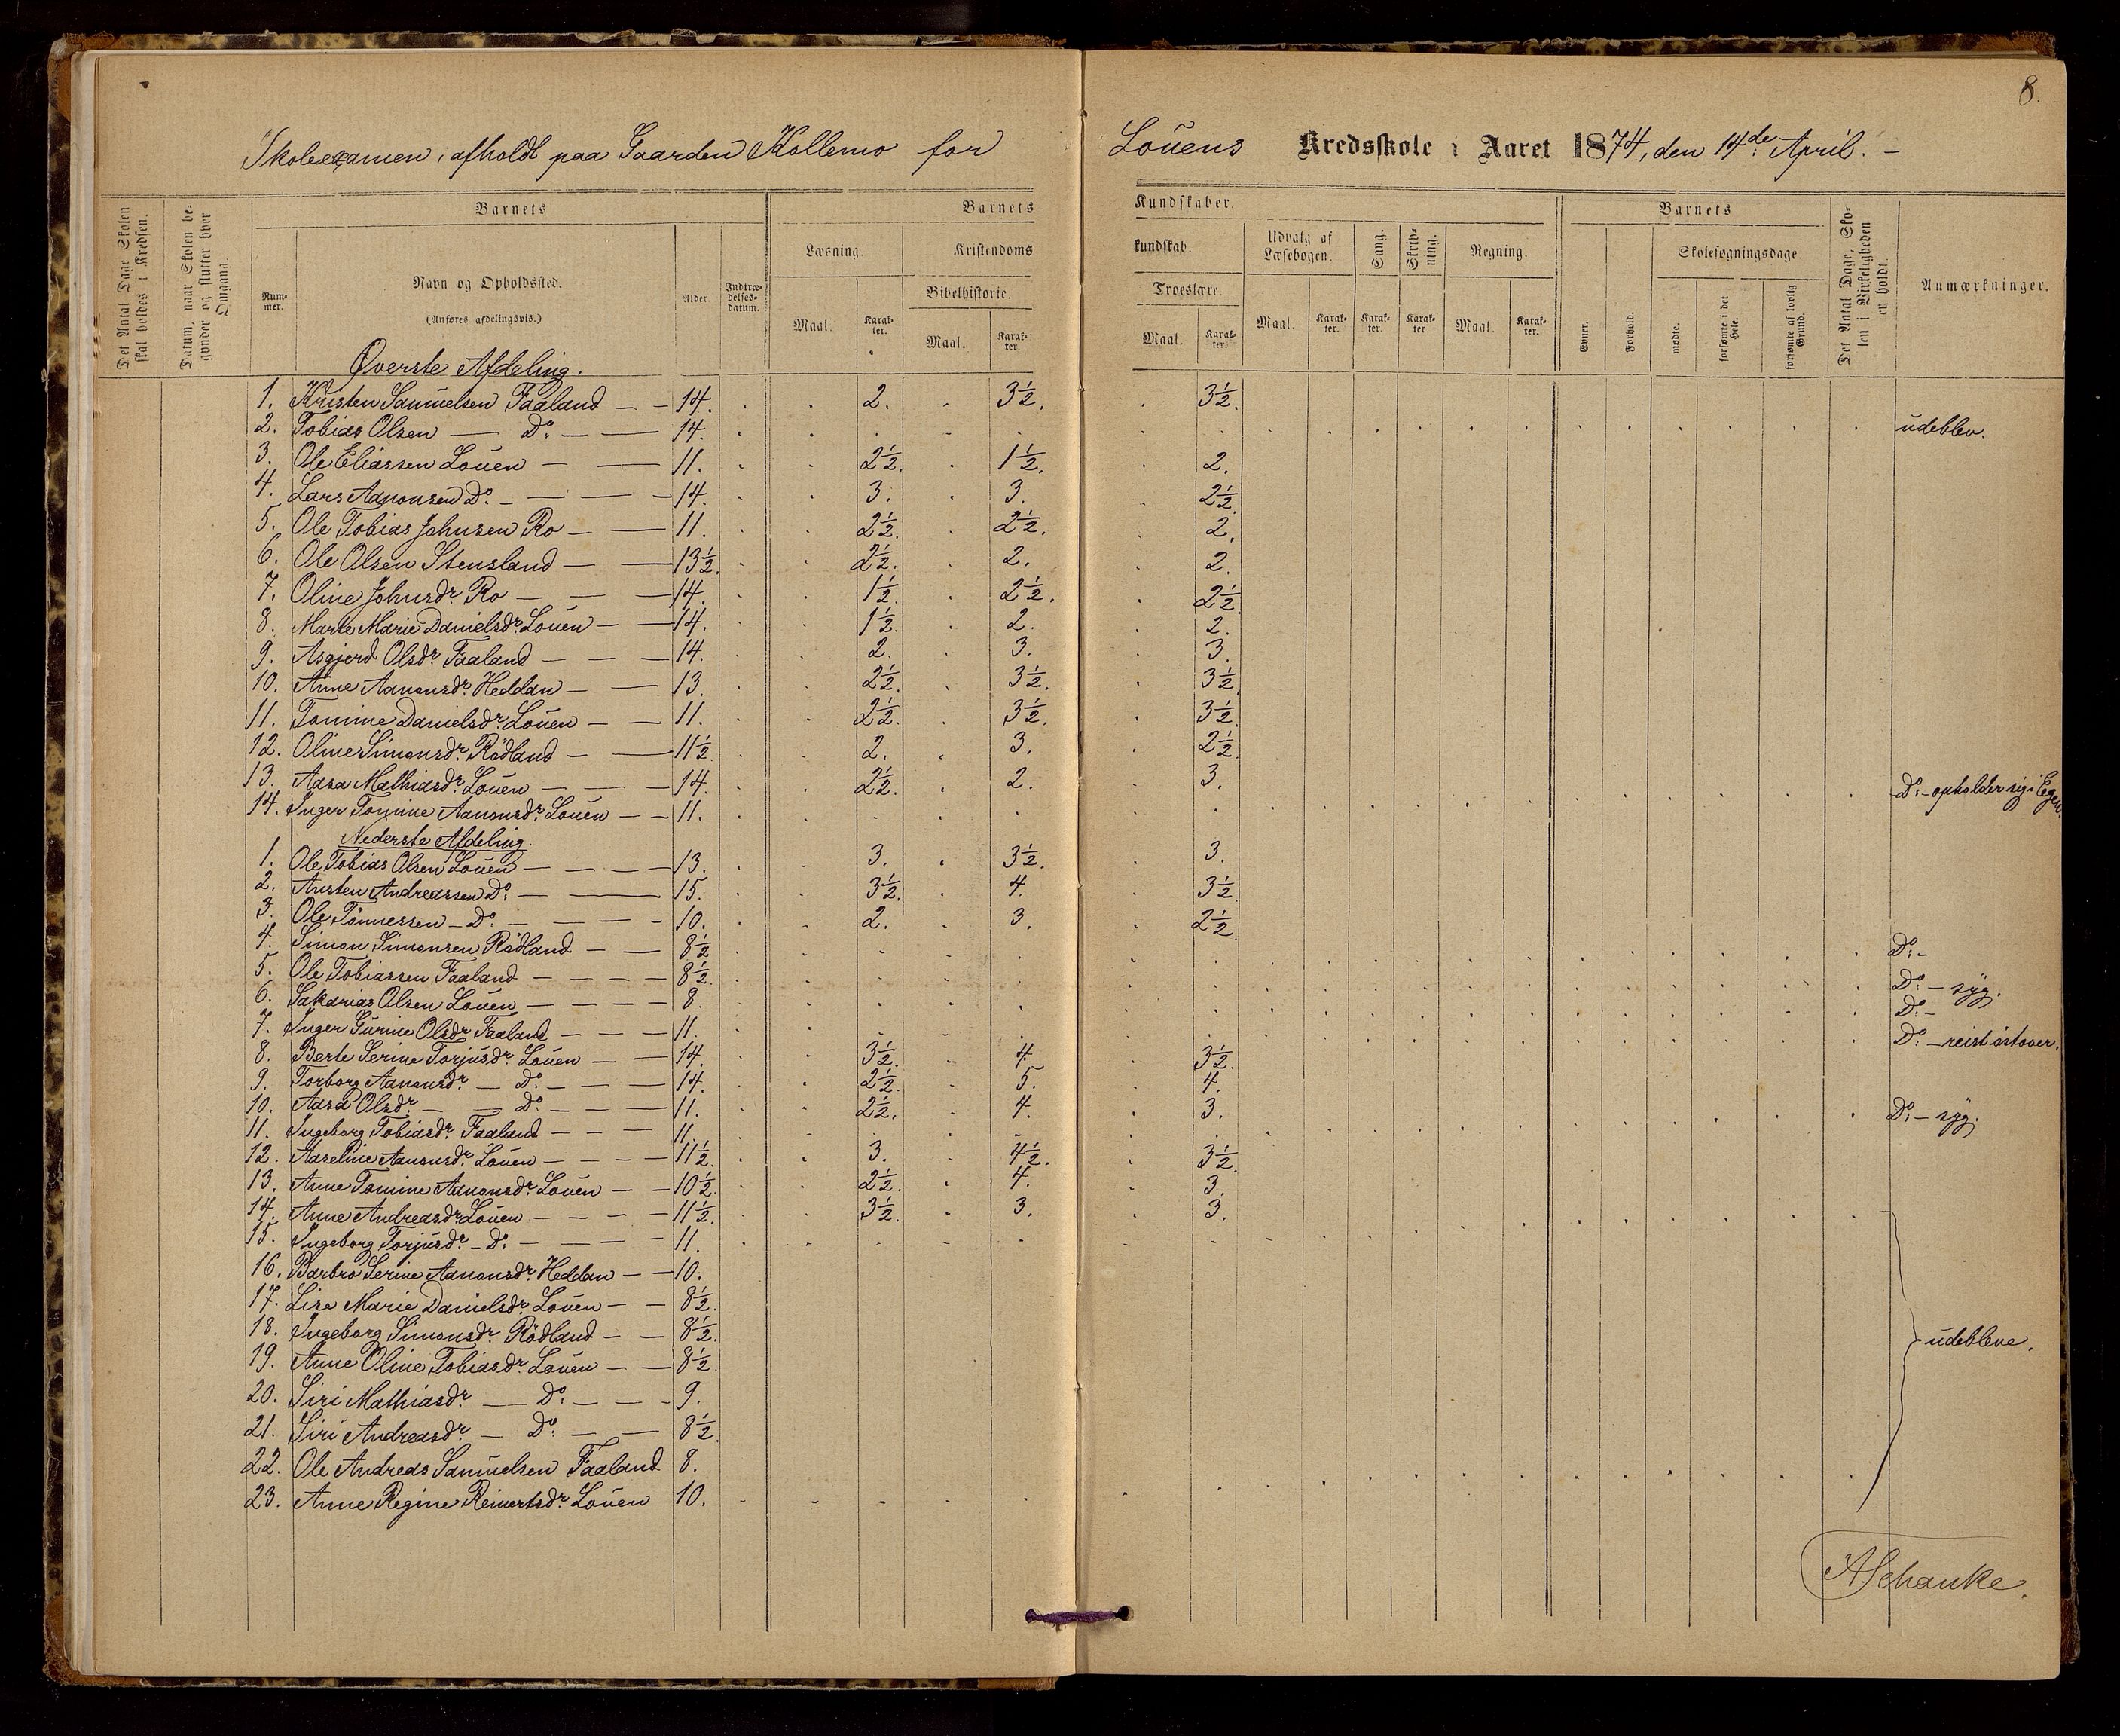 8.
Skoleexamen, afholdt paa Gaarden Kollemo for Louens Kredsskole i Aaret 1874, den 14de April. –
Det Antal Dage Skolen skal holdes i Kredsen.
Datum, naar Skolen begynder og slutter hver Omgang.
Barnets
Nummer.
Navn og Opholdssted.
(Anføres afdelingsvis.)
Alder.
Indtrædelsesdatum.
Barnets Kundskaber.
Læsning.
Maal.
Karakter.
Kristendomskundskab.
Bibelhistorie.
Maal.
Karakter.
Troeslære.
Maal.
Karakter.
Udvalg af Læsebogen.
Maal.
Karakter.
Sang.
Karakter.
Skrivning.
Karakter
Regning.
Maal.
Karakter.
Barnets
Evner.
Forhold.
Skolesøgningsdage
mødte.
forsømte i det Hele.
forsømte af lovlig Grund.
Det Antal Dage, Skolen i Virkeligheden er holdt.
Anmærkninger.
Øverste Afdeling.
1. Kristen Samuelsen Faaland — — 14. 2. 3½. 3½.
2. Tobias Olsen — Do. — — 14. udeblev.
3. Ole Eliassen Louen — — 11. 2½. 1½. 2.
4. Lars Aanonsen Do. — — — 14. 3. 3. 2½.
5. Ole Tobias Johnsen Ro — — 11. 2½. 2½. 2.
6. Ole Olsen Stensland — — 13½. 2½. 2. 2.
7. Oline Johnsdr. Ro — — — 14. 1½. 2½. 2½.
8. Marte Marie Danielsdr. Louen — — 14. 1½. 2. 2.
9. Asgjerd Olsdr. Faaland — — — 14. 2. 3. 3.
10. Anne Aanonsdr. Heddan — — 13. 2½. 3½. 3½.
11. Tomine Danielsdr. Louen — — 11. 2½. 3½. 3½.
12. Oline Simonsdr. Rödland — — 11½. 2. 3. 2½.
13. Aasa Mathiasdr. Louen — — — 14. 2½. 2. 3.
14. Inger Tomine Aanonsdr. Louen — — 11. Do. – opholder sig i Egers.
Nederste Afdeling.
1. Ole Tobias Olsen Louen — — — 13. 3. 3½. 3.
2. Austen Andreassen Do. — — 15. 3½. 4. 3½.
3. Ole Tönnessen — Do. — — — 10. 2. 3. 2½.
4. Simon Simonsen Rödland — — 8½. Do. –
5. Ole Tobiassen Faaland — — — 8½. Do. – syg.
6. Sakarias Olsen Louen — — — 8. Do. –
7. Inger Gurine Olsdr. Faaland — — — 11. Do. – reist östover.
8. Berte Serine Torjusdr. Louen — — 14. 3½. 4. 3½.
9. Torborg Aanonsdr. — Do. — — — 14. 2½. 5. 4.
10. Aasa Olsdr. — — Do. — — — 11. 2½. 4. 3.
11. Ingeborg Tobiasdr. Faaland — — — 11. Do. – syg.
12. Aaseline Aanonsdr. Louen — — — 11½. 3. 4½. 3½.
13. Anne Tomine Aanonsdr. Louen — — 10½. 2½. 4. 3.
14. Anne Andreasdr. Louen — — — 11½. 3½. 3. 3.
15. Ingeborg Torjusdr. — Do. — — — 11.
16. Barbro Serine Aanonsdr. Heddan — — 10.
17. Lise Marie Danielsdr. Louen — — 8½.
18. Ingeborg Simonsdr. Rödland — — 8½. udebleve.
19. Anne Oline Tobiasdr. Louen — — 8½.
20. Siri Mathiasdr. — Do. — — — 9.
21. Siri Andreasdr. — Do. — — 8½.
22. Ole Andreas Samuelsen Faaland 8.
23. Anne Regine Reinertsdr. Louen 10.
A Schanke.